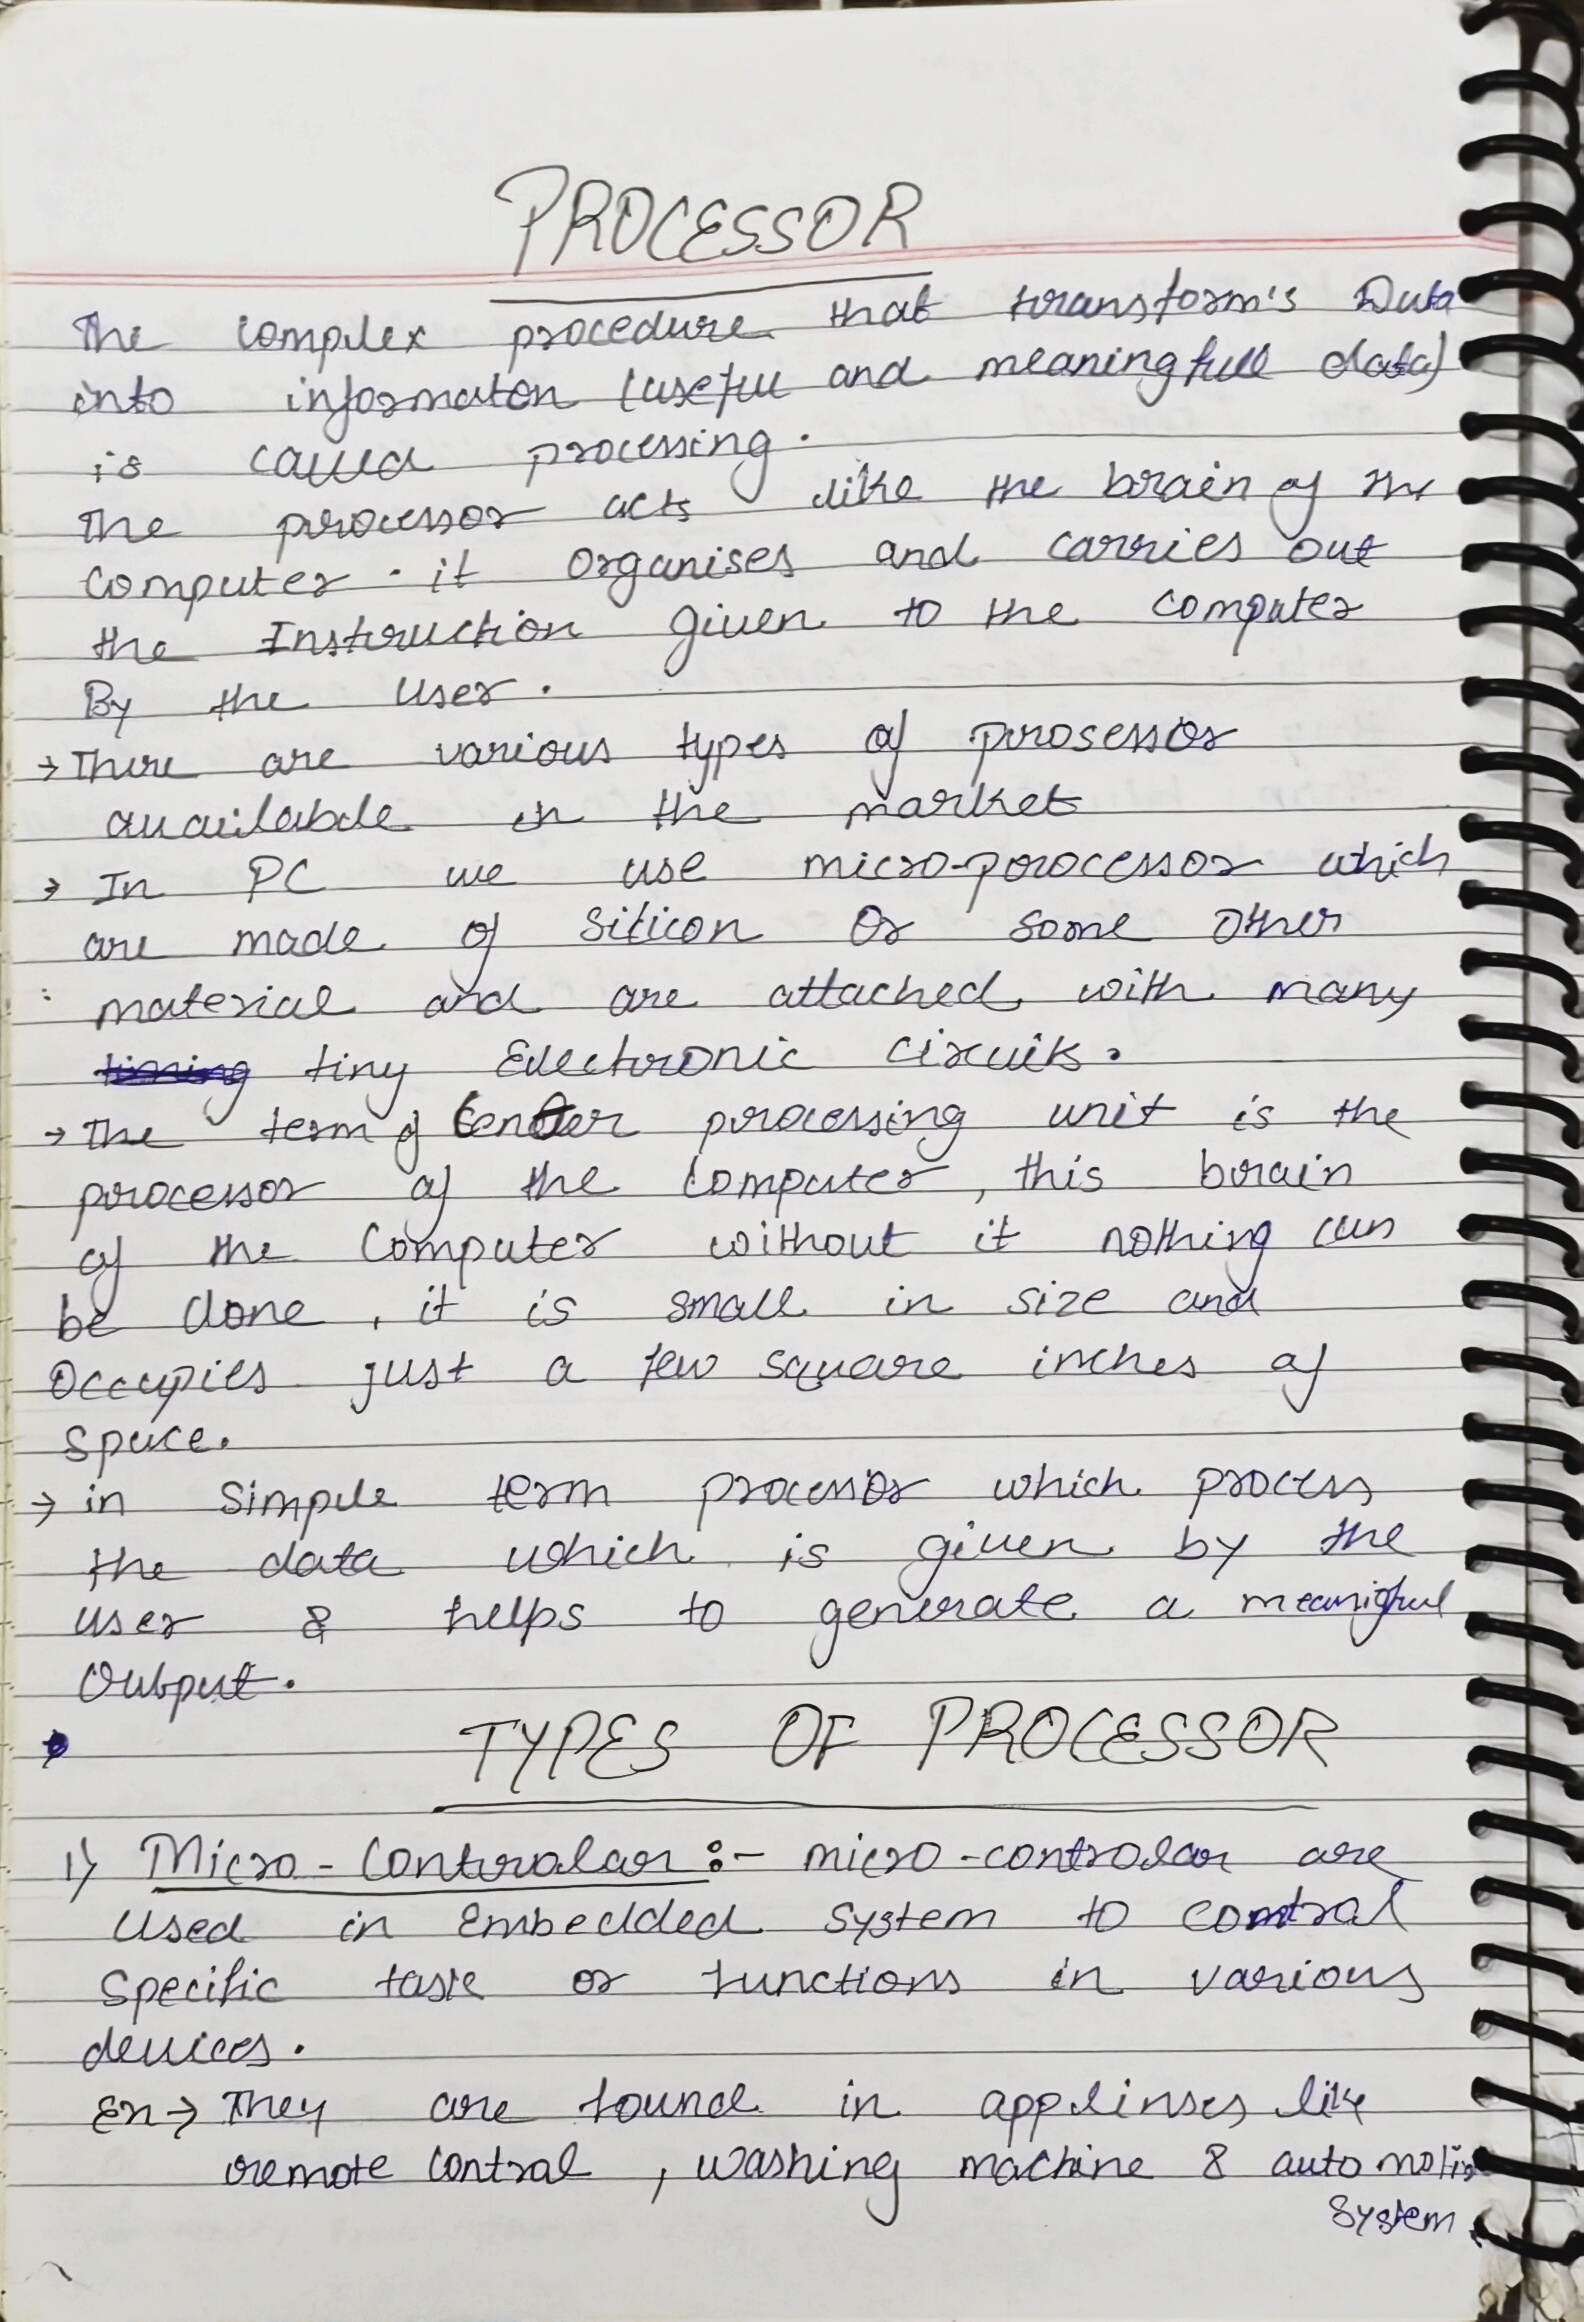 PROCESSOR
The complex procedure that transform's Data
into informaton (usefull and meaningfull data)
is called processing.
The processor acts like the brain of the
computer. it organises and carries out
the Instruction given to the computer
By the user.
→ There are various types of prosessor
available in the market
→ In PC we use micro-processor which
are made of Silicon Or some other
material and are attached with many
tiny Electronic circuits.
→ The term of Center processing unit is the
processor of the computer, this brain
of the Computer without it nothing can
be done, it is small in size and
occupies just a few square inches of
space.
→ in simple term processor which process
the data which is given by the
user & helps to generate a meanigful
Output.
TYPES OF PROCESSOR
1) Micro-Controlar :- micro-controlar are
used in Embedded system to contral
specific task or functions in various
devices.
Ex→ They are found in applinses like
remote contral, washing machine & auto
system.